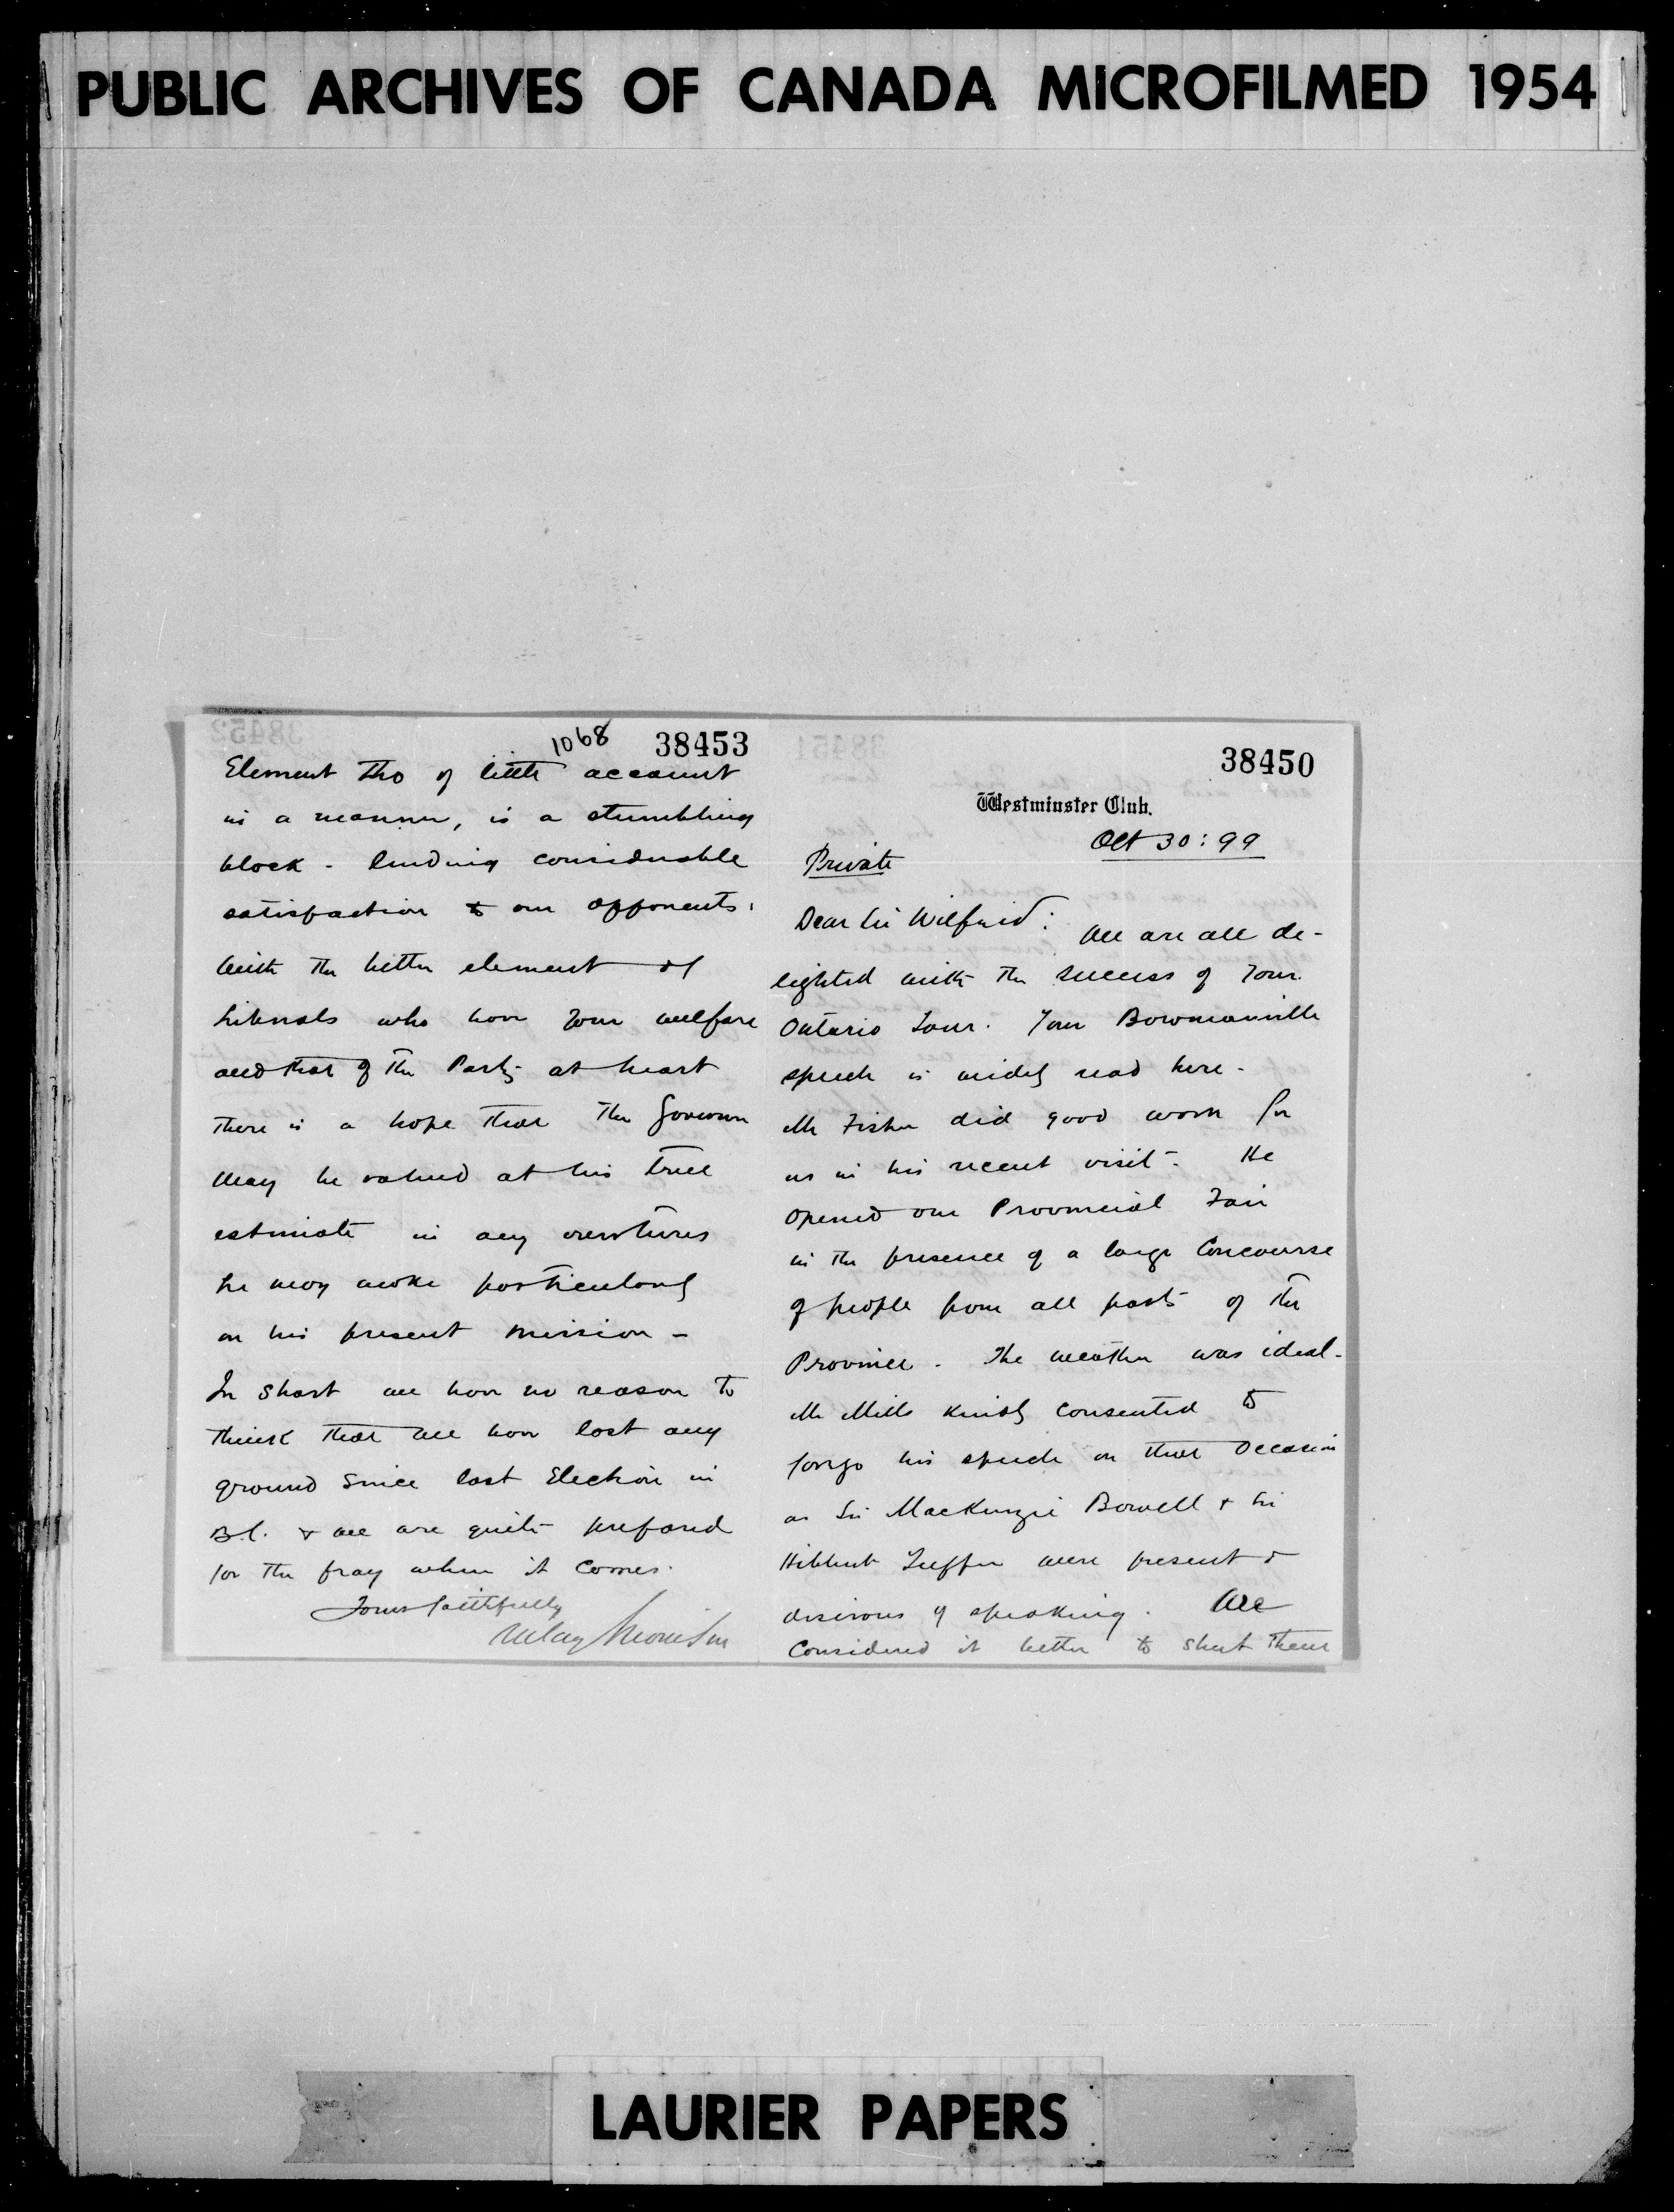 PUBLIC ARCHIVES OF CANADA MICROFILMED 1954
1068 38453
Element tho of little account
in a manner, is a stumbling
block - lending considerable
satisfaction to our opponents.
With the better element of
Liberals who have your welfare
and that of the Party at heart
there is a hope that the Governor
may be valued at his true
estimate in any overtures
he may make particularly
on his present mission -
In short we have no reason to
think that we have lost any
ground since last Election in
B.C. & we are quite prepared
for the fray when it comes.
Yours faithfully
Aulay Morrison
38450
Westminster Club.
Oct 30: 99
Private
Dear Sir Wilfrid:
We are all de-
lighted with the success of your
Ontario Tour. Your Bowmanville
speech is widely read here -
Mr Fisher did good work for
us in his recent visit - He
opened our Provincial Fair
in the presence of a large Concourse
of people from all parts of the
Province. The weather was ideal -
Mr Mills kindly consented to
forego his speech on that Occasion
as Sir MacKenzie Bowell & Sir
Hibbert Tupper were present &
desirous of speaking. We
Considered it better to shut them
LAURIER PAPERS